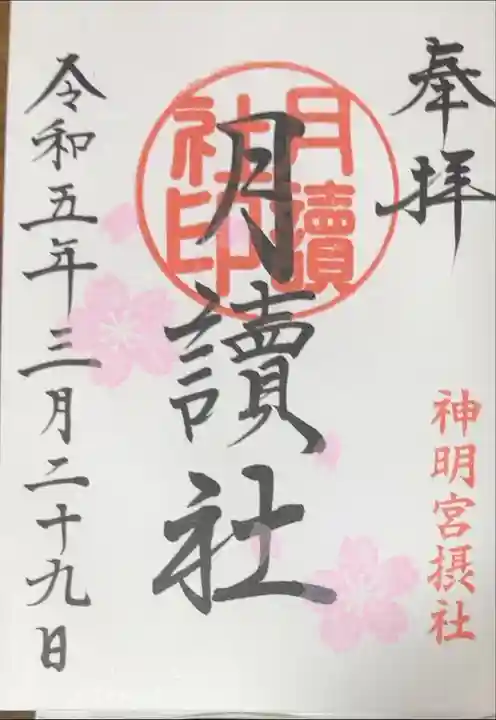 奉拝
神明宮摂社
月讀社
月讀社印
令和五年三月二十九日